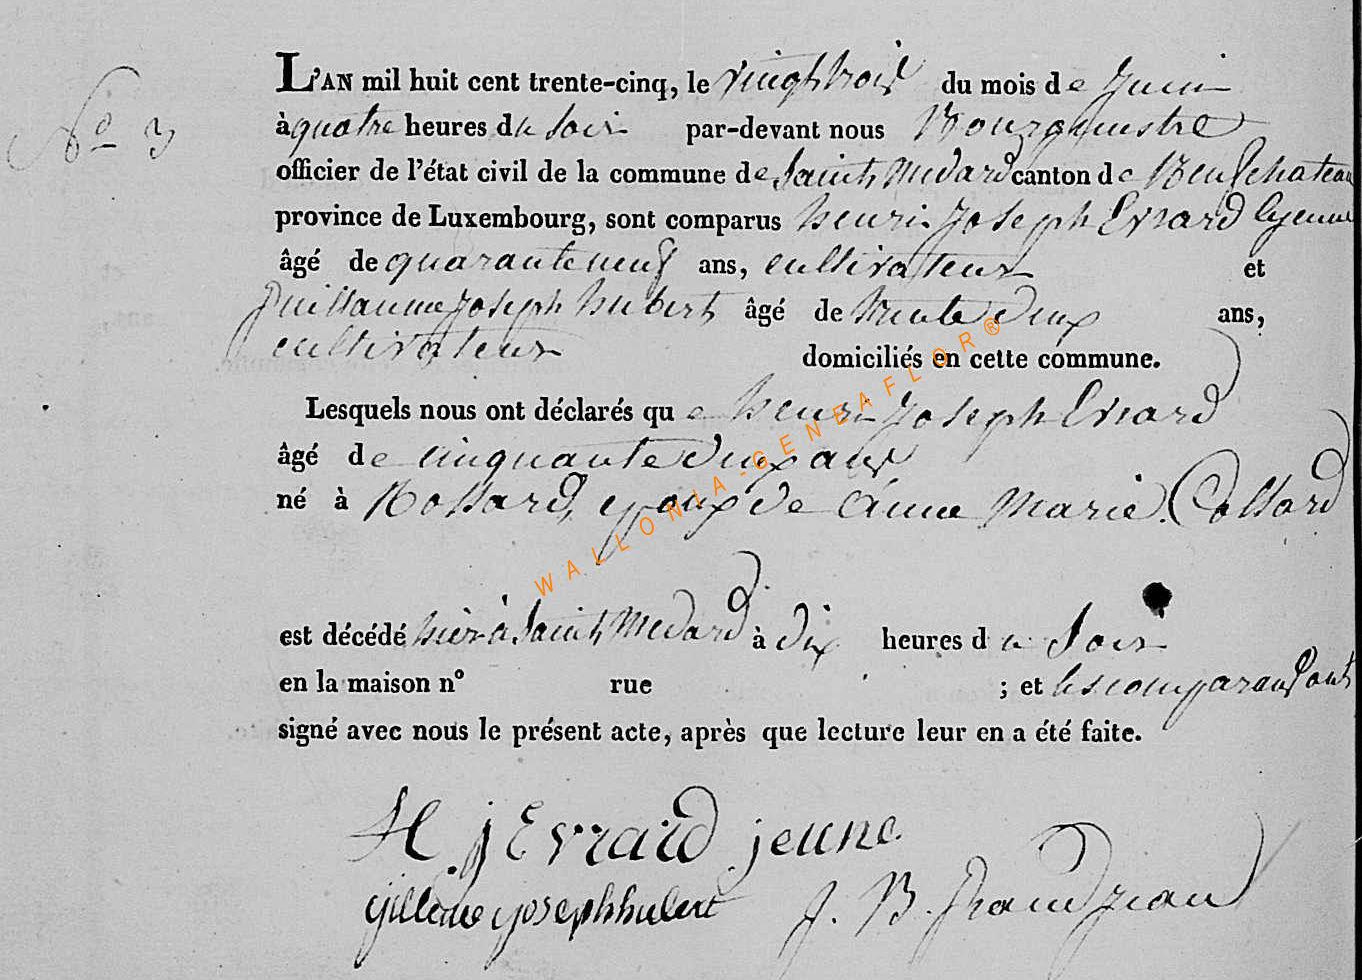 L'AN mil huit cent trente-cinq, le vingt trois du mois de Juin
N° 3
à quatre heures du Soir par-devant nous Bourgmestre
officier de l'état civil de la commune de Saint Medard canton de Neufchateau
province de Luxembourg, sont comparus henri Joseph Evrard le jeune
âgé de quarante neuf ans, cultivateur et
Guillaume Joseph hubert âgé de trente deux ans,
cultivateur domiciliés en cette commune.
Lesquels nous ont déclarés que henri Joseph Evrard
âgé de cinquante deux ans
né à Rossard, epoux de Anne Marie Collard
est décédé hier à Saint Medard à dix heures du Soir
en la maison n° rue ; et les comparans ont
signé avec nous le présent acte, après que lecture leur en a été faite.
H j Evrard jeune
josephhubert J. B.
WALLONIA-GENEAFLOR®